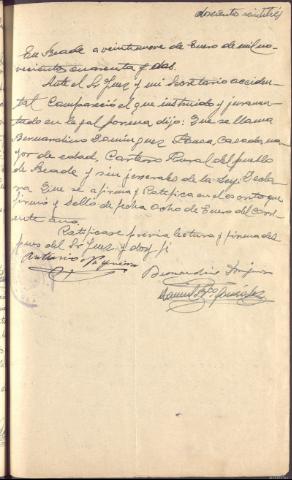 doscientos veintitres
En Beade a veintinueve de Enero de mil no-
vecientos cuarenta y dos.
Ante el Sr Juez y mi Secretario acciden-
tal Compareció el que instruido y juramen-
tado en legal forma dijo: Que se llama
Bernardino Dominguez casado ma-
yor de edad, Cartero Rural del pueblo
de Beade y sin generales de la Ley. Decla-
ra Que se afirma y Ratifica en el escrito que
firmó y selló de fecha ocho de Enero del Corri-
ente año.
Ratificase previa lectura y firma des-
pues del Sr Juez y doy fé
Antonio
Bernardino Dominguez
Manuel Gonzalez